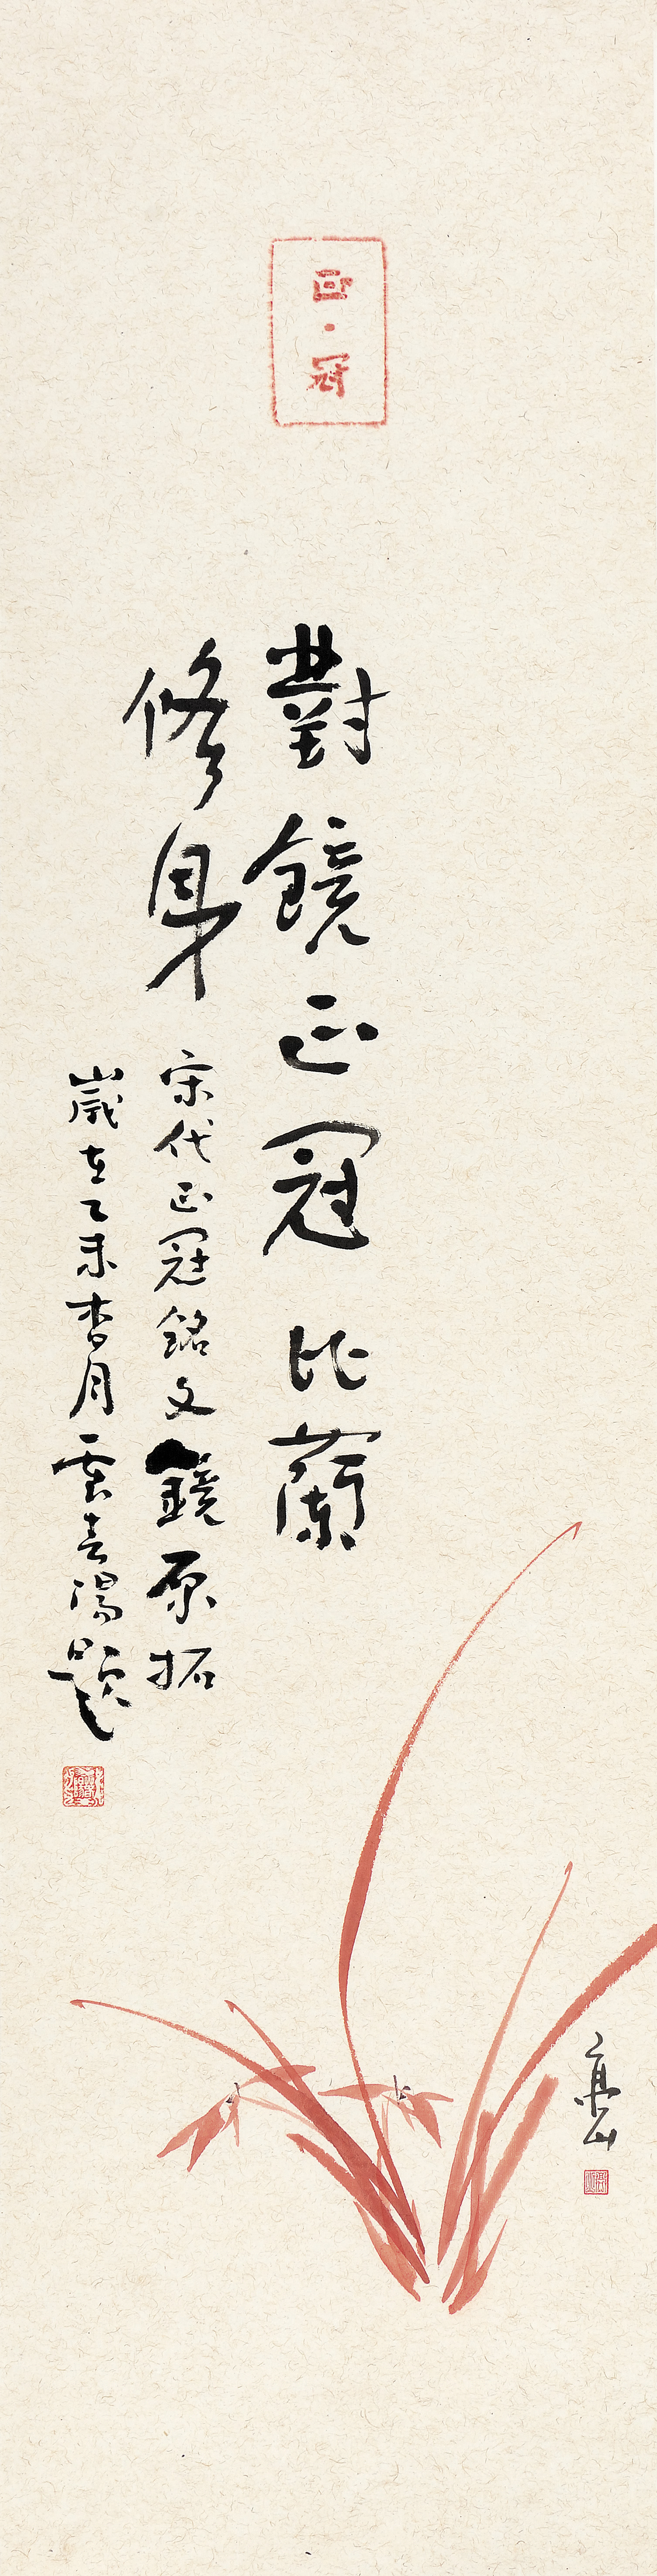 正·冠
對鏡正冠比蘭
修身
宋代正冠銘文鏡原拓
歲在乙未杏月題
山